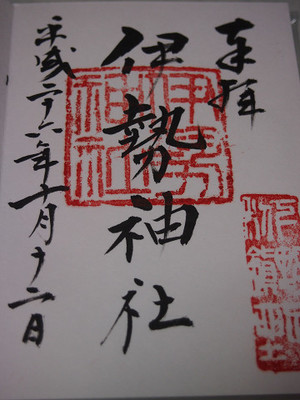 奉拝
伊勢神社
平成二十六年十月十二日
伊勢
神社